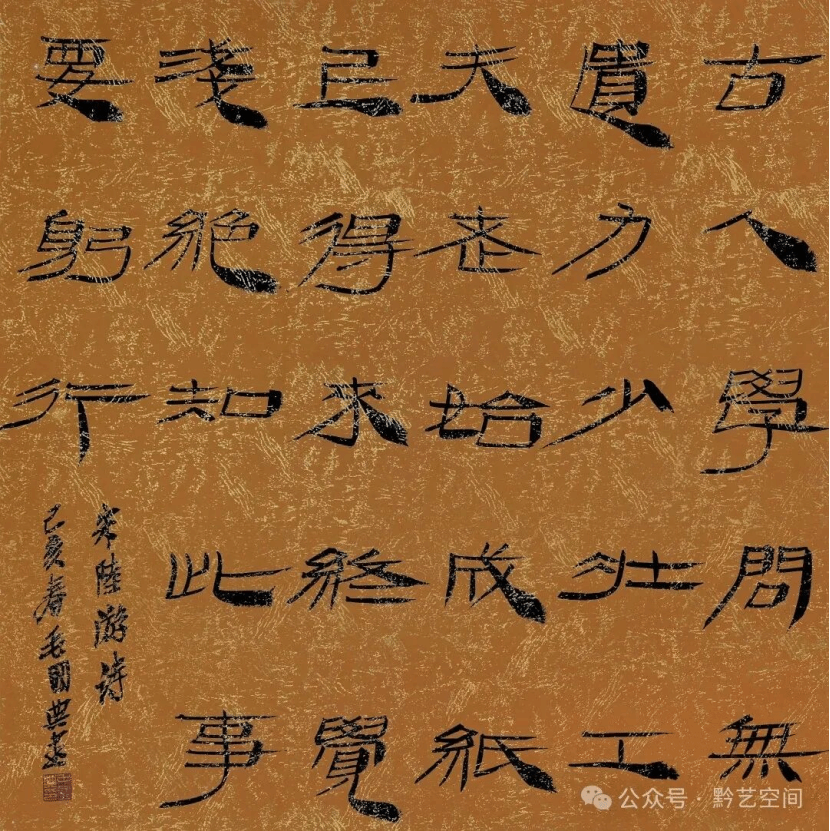 古人學問無
遺力少壯工
夫老始成紙
得来終覺
淺絕知此事
要躬行
宋陸游詩
己亥春毛國典書
公众号·黔艺空间